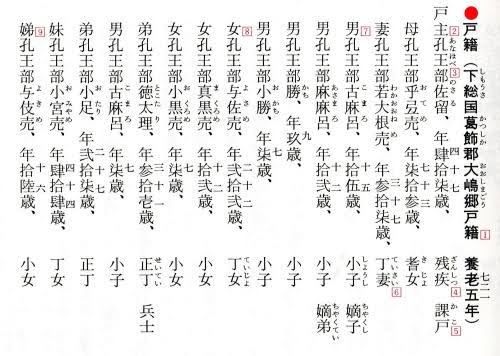 ●戸籍（下総国葛飾郡大嶋郷戸籍1 養老五年）
戸2主孔王部3佐留、年肆拾柒歳、 残疾4 課戸5
母孔王部乎弖売、年柒拾参歳、 耆女
妻孔王部若大根売、年参拾柒歳、 丁妻6
男7孔王部古麻呂、年拾伍歳、 小子 嫡子
男孔王部麻麻呂、年柒歳、 小子 嫡弟
男孔王部勝、年玖歳、 小子
男孔王部小勝、年柒歳、 小子
女8孔王部与佐売、年弐拾弐歳、 丁女
女孔王部真黒売、年拾弐歳、 小女
女孔王部小黒売、年柒歳、 小女
弟孔王部徳太理、年参拾壱歳、 正丁 兵士
男孔王部古麻呂、年柒歳、 小子
弟孔王部小足、年弐拾柒歳、 正丁
妹孔王部小宮売、年肆拾肆歳、 丁女
娣9孔王部与伎売、年拾陸歳、 小女